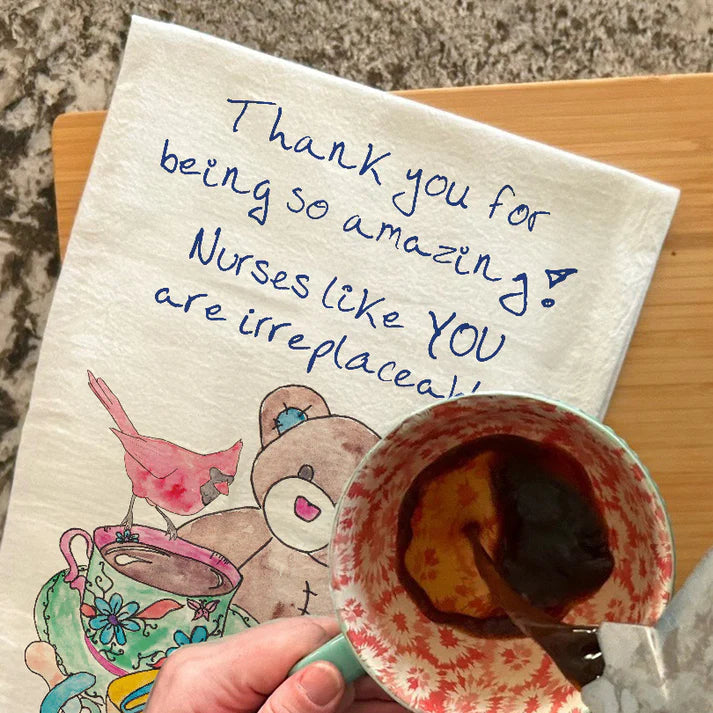 Thank you for
being so amazing!
Nurses like YOU
are